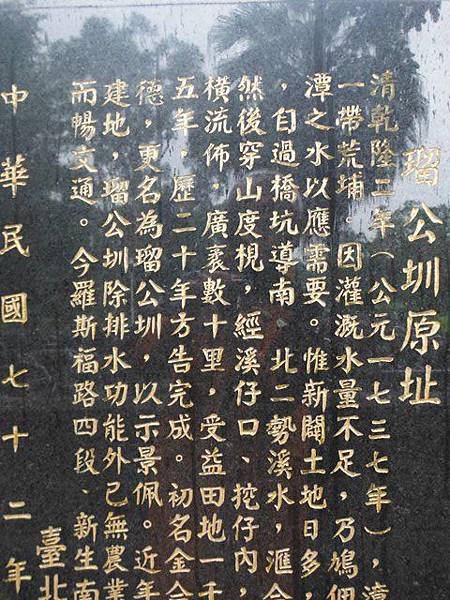 瑠公圳原址
清乾隆二年（公元一七三七年），漳
一帶荒埔。因灌溉水量不足，乃鳩佃
潭之水以應需要。惟新闢土地日多，
，自過橋坑導南。北二勢溪水，滙合
然後穿山度梘，經溪仔口、挖仔內，
橫流佈，廣袤數十里，受益田地一千
五年，歷二十年方告完成。初名金合
德，更名為瑠公圳，以示景佩。近年
建地，瑠公圳除排水功能外已無農業
而暢交通。今羅斯福路四段、新生南
中華民國七十二年
臺北